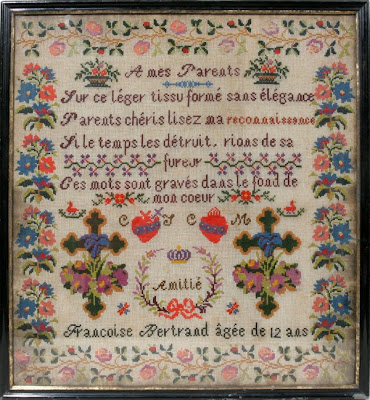 A mes Parents
Sur ce léger tissu formé sans élégance
Parents chéris lisez ma reconnaissance
Si le temps les détruit, rions de sa
fureur
Ces mots sont gravés dans le fond de
mon coeur
C & C M
Amitié
Francoise Bertrand âgée de 12 ans